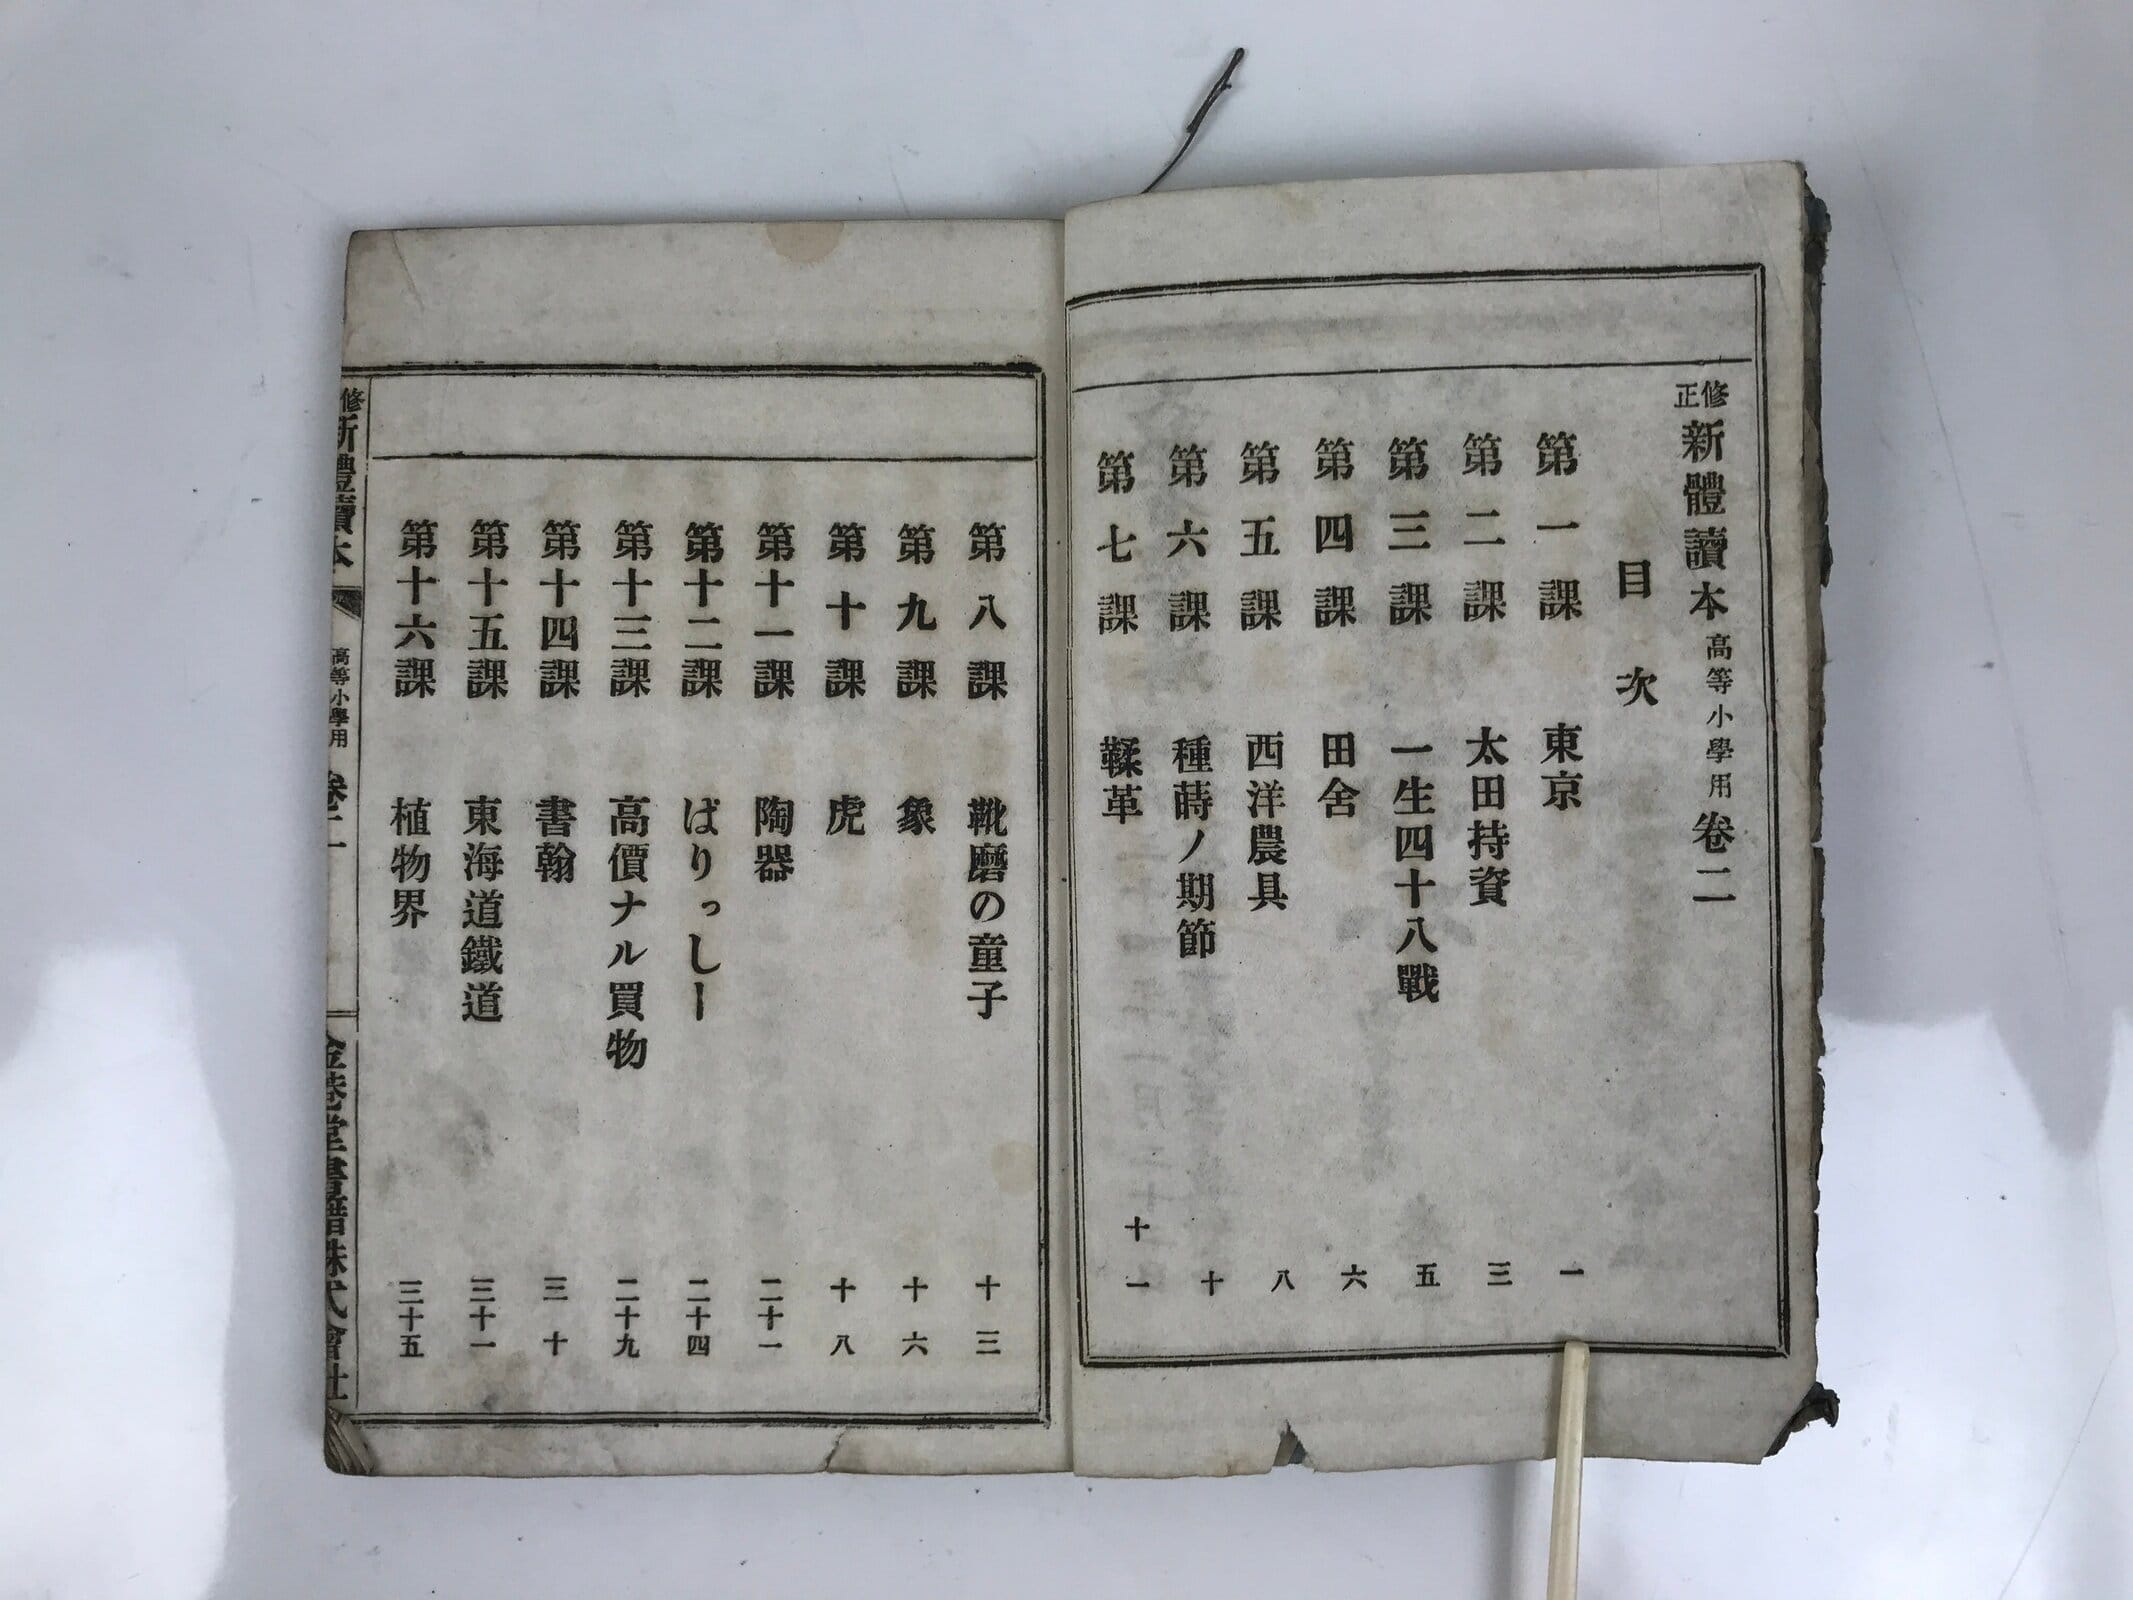 修正 新體讀本 高等小學用 卷二
目次
第一課 東京 一
第二課 太田持資 三
第三課 一生四十八戰 五
第四課 田舍 六
第五課 西洋農具 八
第六課 種蒔ノ期節 十
第七課 鞣革 十一
第八課 靴磨の童子 十三
第九課 象 十六
第十課 虎 十八
第十一課 陶器 二十一
第十二課 ばりっしー 二十四
第十三課 高價ナル買物 二十九
第十四課 書翰 三十
第十五課 東海道鐵道 三十一
第十六課 植物界 三十五
修 新體讀本 高等小學用 卷二 金港堂書籍株式會社